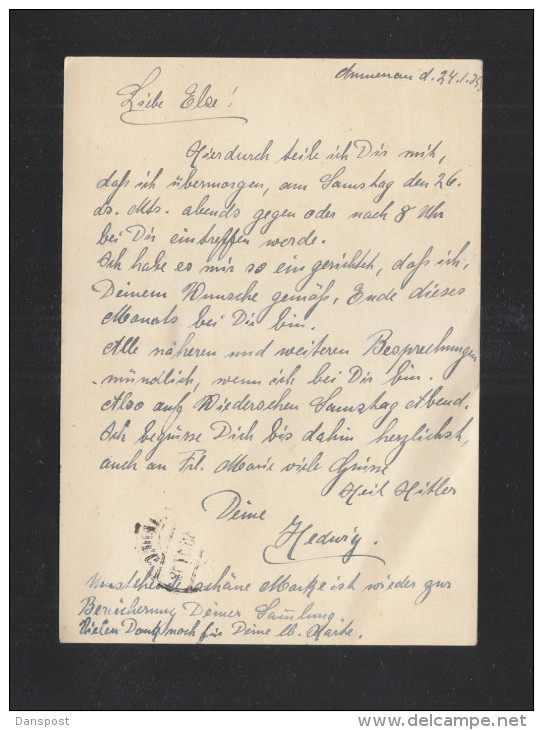 d. 24.1.35
Liebe Else!
Hierdurch teile ich Dir mit,
daß ich übermorgen, am Samstag den 26.
ds. Mts. abends gegen oder nach 8 Uhr
bei Dir eintreffen werde.
Ich habe es mir so eingerichtet, daß ich,
Deinem Wunsche gemäß, Ende dieses
Monats bei Dir bin.
Alle näheren und weiteren Besprechungen
mündlich, wenn ich bei Dir bin.
Also auf Wiedersehen Samstag Abend.
Ich begrüsse Dich bis dahin herzlichst,
auch an Frl. Marie viele Grüsse
Heil Hitler
Deine
Hedwig.
Vorstehende schöne Marke ist wieder zur
Bereicherung Deiner Sammlung.
Vielen Dank noch für Deine lb. Karte.
Danspost
www.delcampe.net